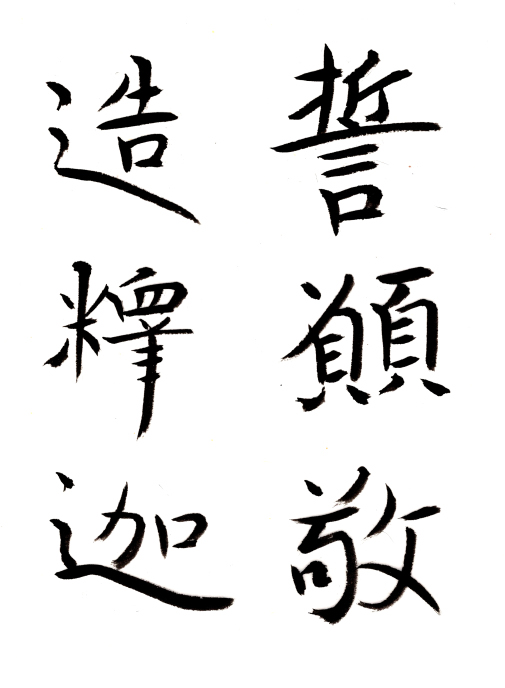 誓願敬
造釋迦